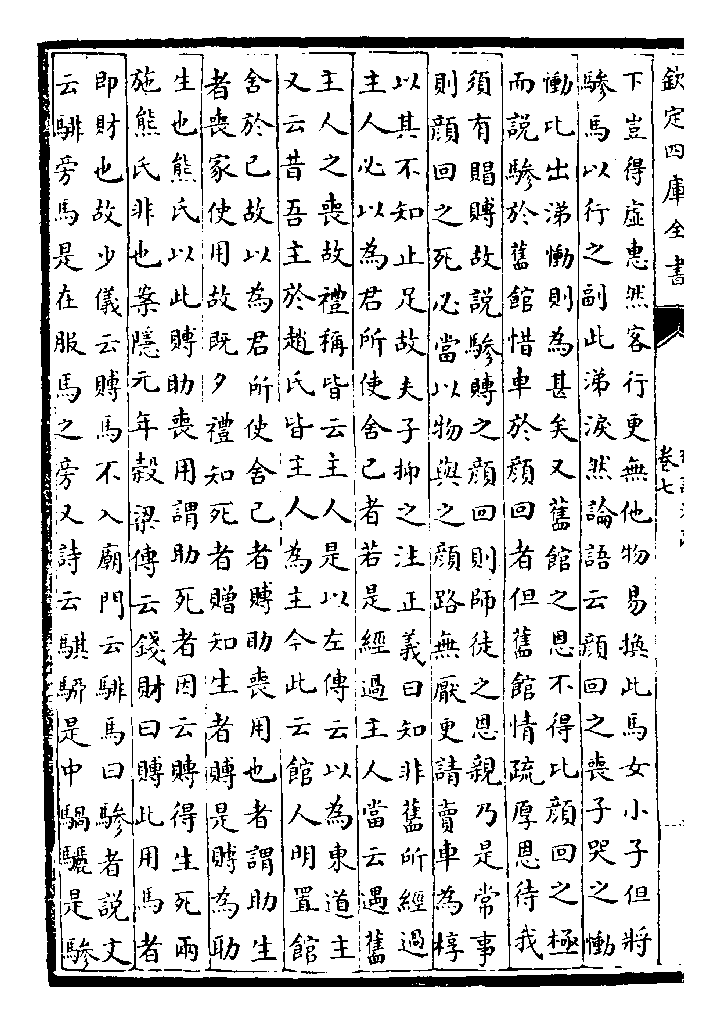 欽定四庫全書
卷七
下豈得虛惠然客行更無他物易換此馬女小子但將
驂馬以行之副此涕淚然論語云顏回之喪子哭之慟
慟比出涕慟則為甚矣又舊館之恩不得比顏回之極
而說驂於舊館惜車於顏回者但舊館情疏厚恩待我
須有賵賻故說驂賻之顏回則師徒之恩親乃是常事
則顏回之死必當以物與之顏路無厭更請賣車為椁
以其不知止足故夫子抑之注正義曰知非舊所經過
主人必以為君所使舍己者若是經過主人當云遇舊
主人之喪故禮稱皆云主人是以左傳云以為東道主
又云昔吾主於趙氏皆主人為主今此云館人明置館
舍於已故以為君所使舍己者賻助喪用也者謂助生
者喪家使用故既夕禮知死者贈知生者賻是賻為助
生也熊氏以此賻助喪用謂助死者因云賻得生死兩
施熊氏非也案隱元年穀梁傳云錢財曰賻此用馬者
即財也故少儀云賻馬不入廟門云騑馬曰驂者說文
云騑旁馬是在服馬之旁又詩云騏駵是中騧驪是驂